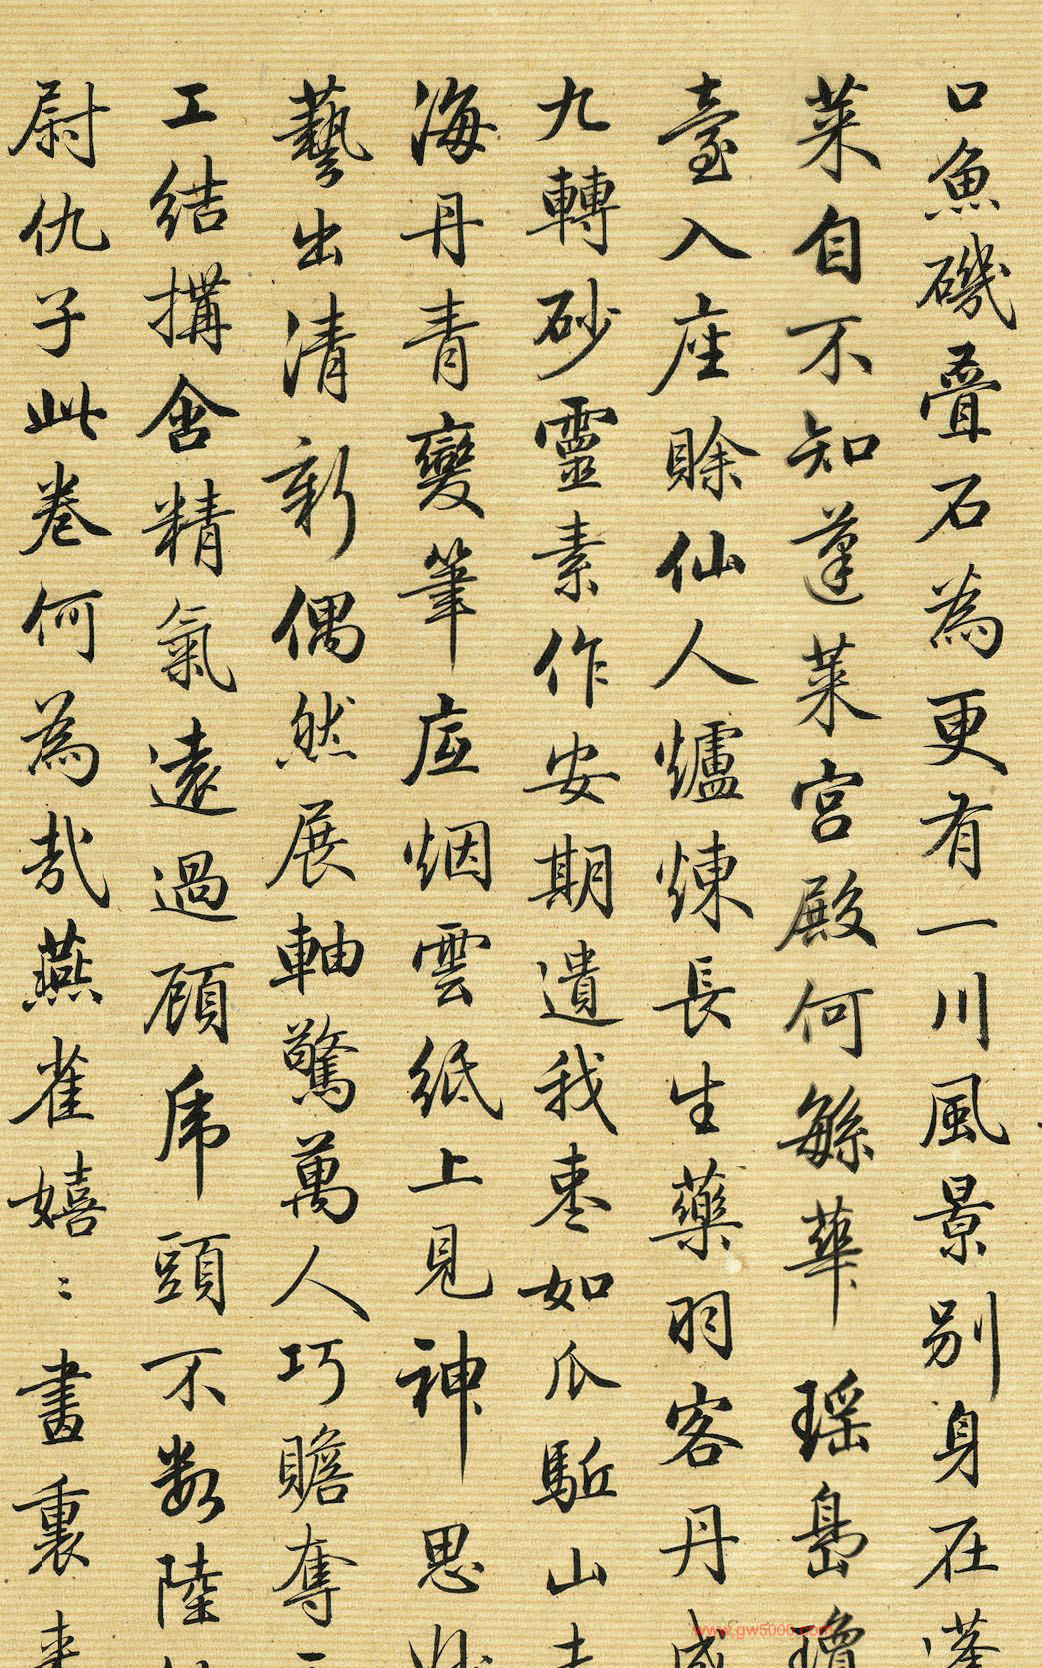 口魚磯疊石為更有一川風景别身在蓬
萊自不知蓬萊宮殿何繇華瑶島瓊
臺入座賒仙人爐煉長生藥羽客丹成
九轉砂靈素作安期遺我棗如瓜駈山走
海丹青變筆底烟雲紙上見神思妙
藝出清新偶然展軸驚萬人巧贍奪
工結搆含精氣遠過顧虎頭不數陸
尉仇子此巻何為哉燕雀嬉〻畫裏来
www.gw5000.com